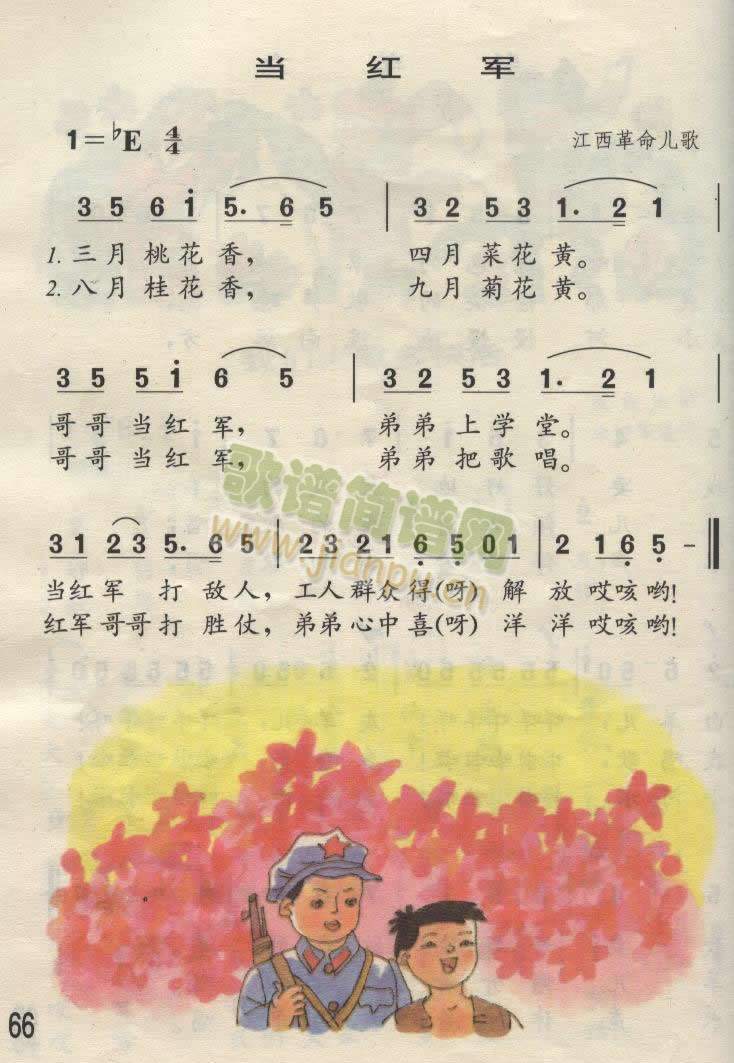 当 红 军
1=♭E 4/4
江西革命儿歌
3 5 6 i 5. 6 5 | 3 2 5 3 1. 2 1 |
1. 三月桃花香， 四月菜花黄。
2. 八月桂花香， 九月菊花黄。
3 5 5 i 6 5 | 3 2 5 3 1. 2 1
哥哥当红军， 弟弟上学堂。
哥哥当红军， 弟弟把歌唱。
歌谱简谱网
www.jianpu.cn
31 23 5. 6 5 | 23 21 6. 5. 01 | 2 16 5 - ||
当红军 打敌人，工人群众得(呀) 解 放 哎咳哟！
红军哥哥打胜仗，弟弟心中喜(呀) 洋 洋 哎咳哟！
66